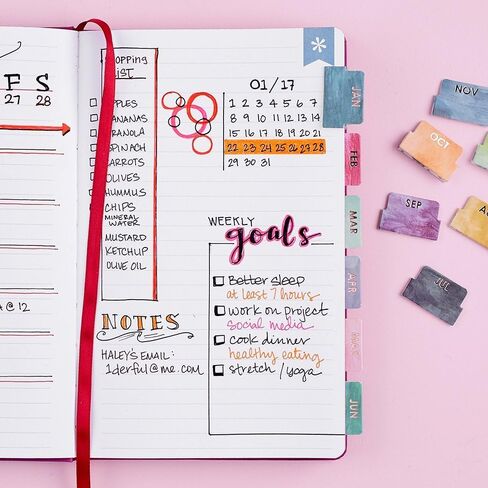 F S
27 28
A @ 12
SHOPPING
LIST
APPLES
BANANAS
GRANOLA
SPINACH
CARROTS
OLIVES
HUMMUS
CHIPS
MINERAL
WATER
MUSTARD
KETCHUP
OLIVE OIL
NOTES
HALEY'S EMAIL:
1derful@me.com
01/17
1 2 3 4 5 6 7
8 9 10 11 12 13 14
15 16 17 18 19 20 21
22 23 24 25 26 27 28
29 30 31
WEEKLY
goals
Better sleep
at least 7 hours
work on project
social media
cook dinner
healthy eating
stretch / yoga
JAN
FEB
MAR
APR
MAY
JUN
NOV
OCT
SEP
JUL